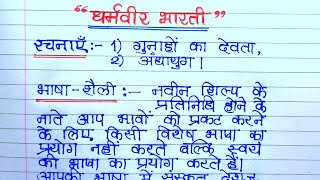 “धर्मवीर भारती”
रचनाएँ:- 1) गुनाहों का देवता,
2) अंधायुग।
भाषा-शैली:- नवीन शिल्प के
प्रतिनिधि होने के
नाते आप भावों को प्रकट करने
के लिए, किसी विशेष भाषा का
प्रयोग नहीं करते बल्कि स्वयं
की भाषा का प्रयोग करते हैं।
आपकी भाषा में संस्कृत,